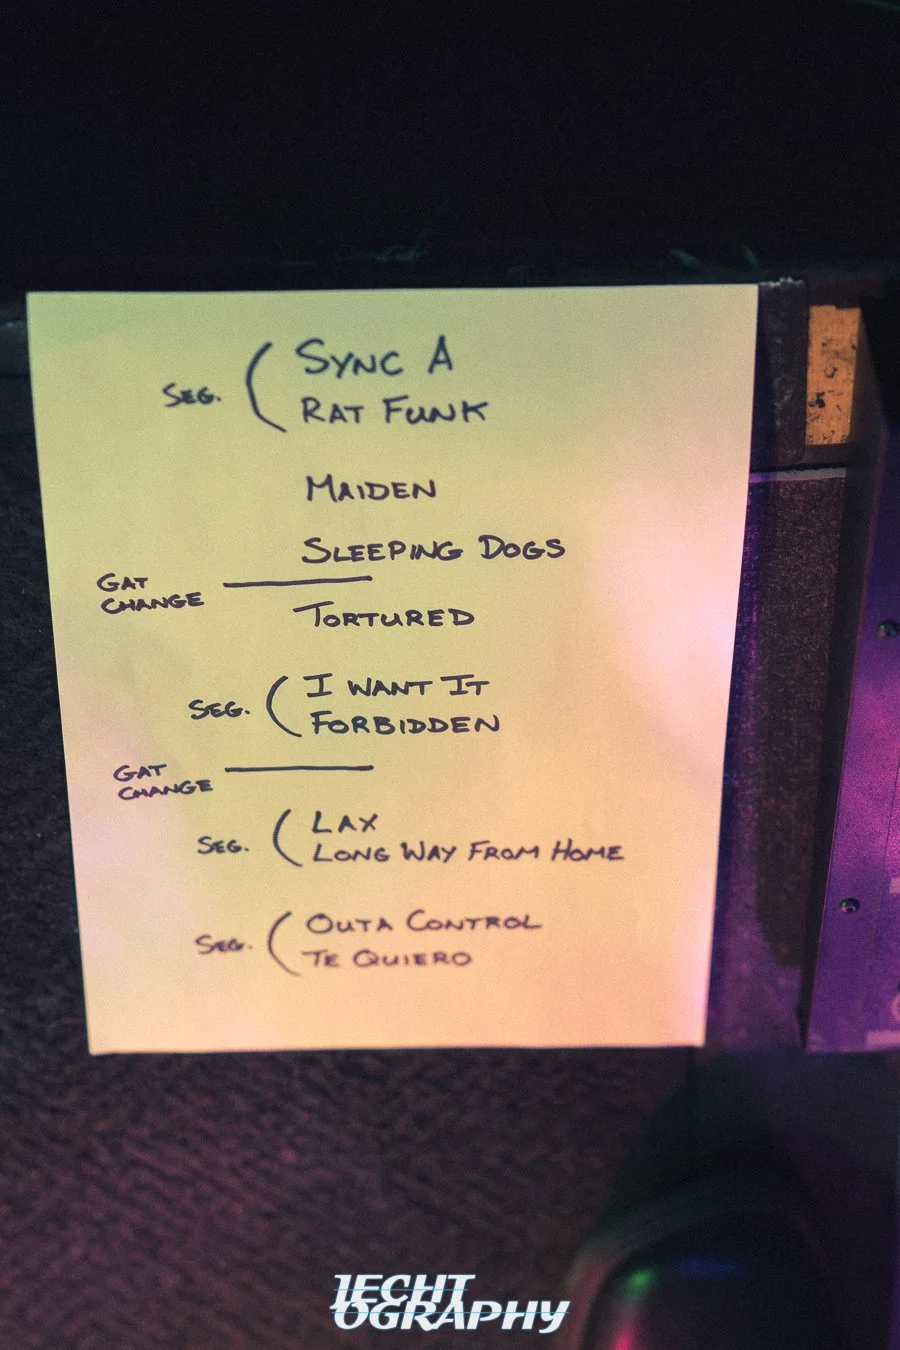 SYNC A
SEG.
RAT FUNK
MAIDEN
SLEEPING DOGS
GAT
CHANGE
TORTURED
I WANT IT
SEG.
FORBIDDEN
GAT
CHANGE
LAX
SEG.
LONG WAY FROM HOME
OUTA CONTROL
SEG.
TE QUIERO
IECHT
OGRAPHY